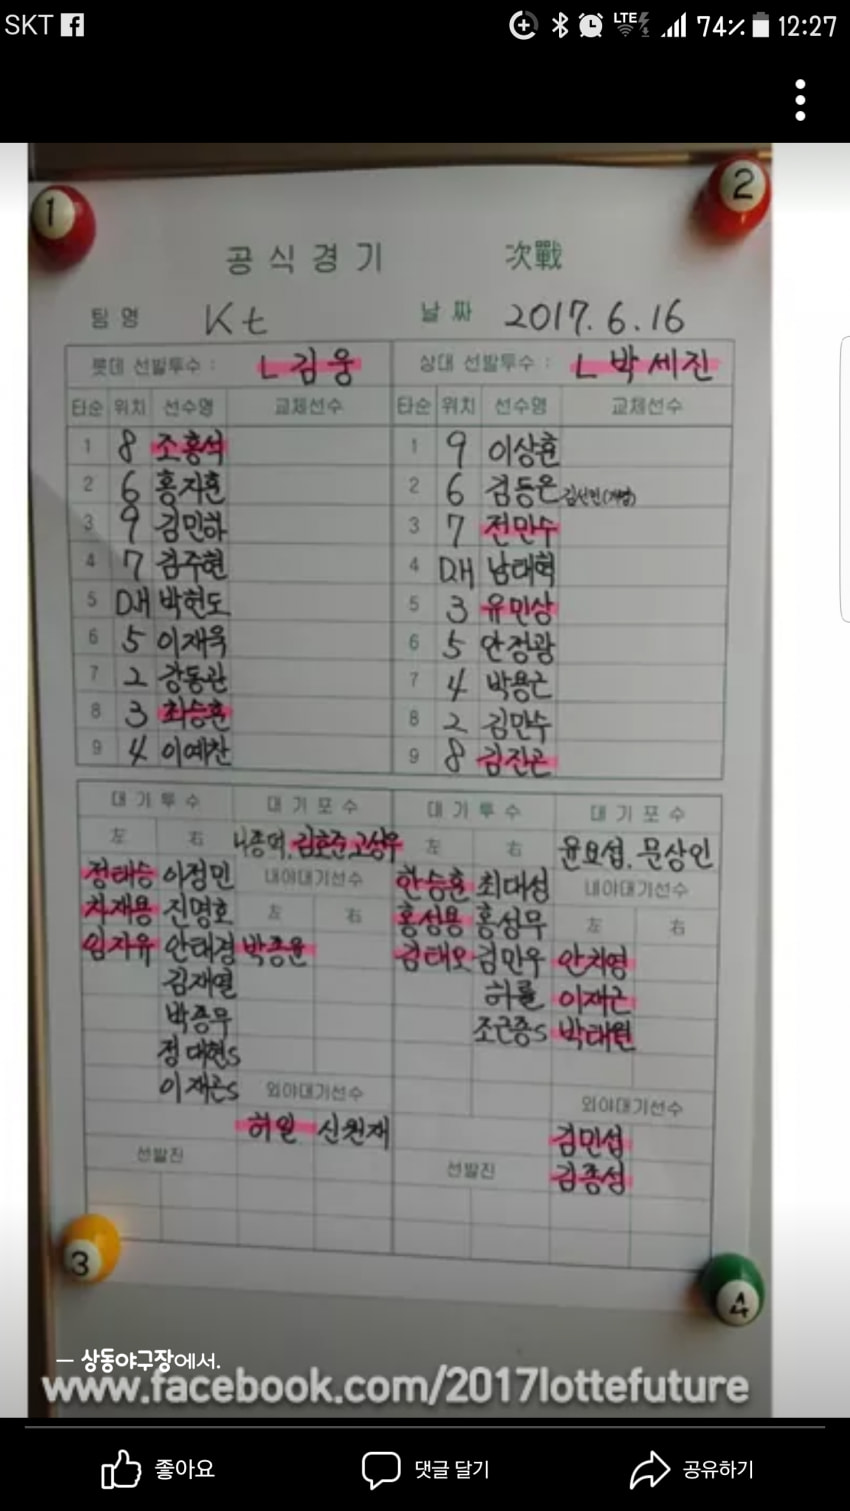 SKT LTE 74% 12:27
1 2
공식경기 次戰
팀명 Kt 날짜 2017.6.16
롯데 선발투수 : L 김웅 상대 선발투수 : L 박세진
타순 위치 선수명 교체선수 타순 위치 선수명 교체선수
1 8 조홍석 1 9 이상훈
2 6 홍지훈 2 6 김동은 김선민(재염)
3 9 김민하 3 7 전민수
4 7 김주현 4 DH 남태혁
5 DH 박헌도 5 3 유민상
6 5 이재욱 6 5 안정광
7 2 강동관 7 4 박용근
8 3 최승훈 8 2 김만수
9 4 이예찬 9 8 김진곤
대기투수 대기포수 대기투수 대기포수
左 右 나종덕. 김호준 고성우 左 右 윤요섭. 문상인
정태승 이정민 내야대기선수 한승훈 최대성 내야대기선수
차재용 진명호 左 右 홍성용 홍성무 左 右
임지유 안태경 박종윤 김태오 김민우 안치영
김재열 허률 이재근
박종무 조근종s 박태원
정대현s
이재곤s 외야대기선수 외야대기선수
허일 신원재 김민섭
선발진 선발진 김종성
3 4
– 상동야구장에서.
www.facebook.com/2017lottefuture
좋아요 댓글 달기 공유하기